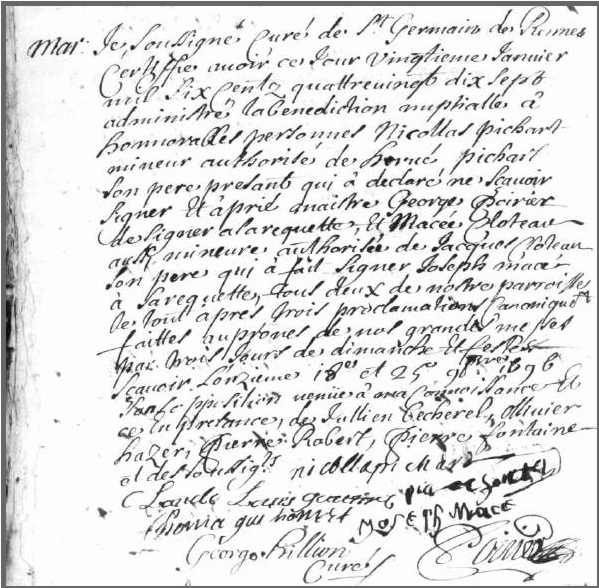 Mar: Je Soussigné Curé de St Germain de Rennes
Certiffie avoir ce Jour vingtieme Janvier
mil Six Cents quattrevingt dix Sept
administré labenediction nuptialle à
honnorables personnes Nicollas pichart
mineur authorisé de hervé pichart
Son pere presant qui à declaré ne Scavoir
Signer Et à prié maistre George Poirier
de Signer a larequette, Et Macée Cloteau
aussi mineure authorisée de Jacques Cloteau
Son pere qui à fait Signer Joseph macé
à Sarequette, tous deux de nostre parroisse
Le tout apres trois proclamations Canoniquemt
faittes auprones de nos grandes messes
par trois Jours de dimanche Et festes
Scavoir L'onzieme 18e et 25 9bre 1696
Sans opposition venüe à ma Connoissance Et
ce En presance, de Jullien Becherel, ollivier
hazer, Pierre Robert, Pierre fontaine
et des Soussigs nicollas pichart
Claude Louis
Thoma qui
Joseph Mace
George Rillion Poirier
Curé